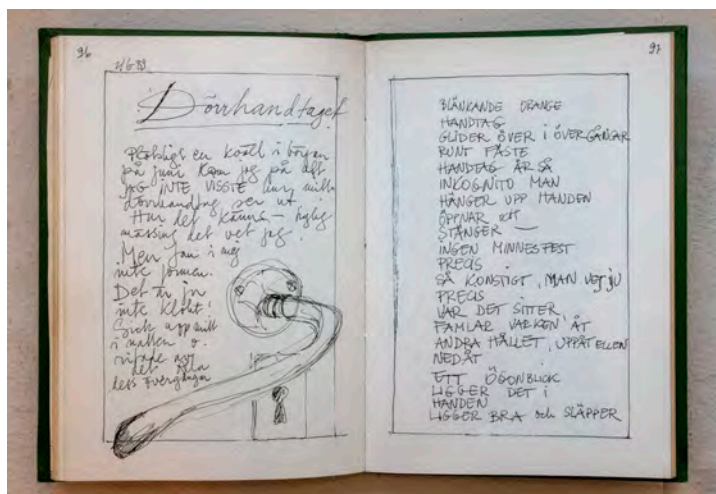 96
Dörrhandtaget
Plötsligt en kväll i början
på juni kom jag på att
jag INTE VISSTE hur mitt
dörrhandtag ser ut.
Hur det känns – kylig
mässing det vet jag!
Men fan i mig
inte formen.
Det är ju
inte klokt!
Gick upp mitt
i natten o.
ritade av
det
dess övergångar
97
BLÄNKANDE ORANGE
HANDTAG
GLIDER ÖVER I ÖVERGÅNGAR
RUNT FÄSTE
HANDTAG ÄR SÅ
INKOGNITO MAN
HÄNGER UPP HANDEN
ÖPPNAR och
STÄNGER —
INGEN MINNESFEST
PRECIS
SÅ KONSTIGT, MAN VET JU
PRECIS
VAR DET SITTER
FAMLAR VARKEN ÅT
ANDRA HÅLLET, UPPÅT ELLER
NEDÅT
ETT ÖGONBLICK
LIGGER DET I
HANDEN
LIGGER BRA och SLÄPPER